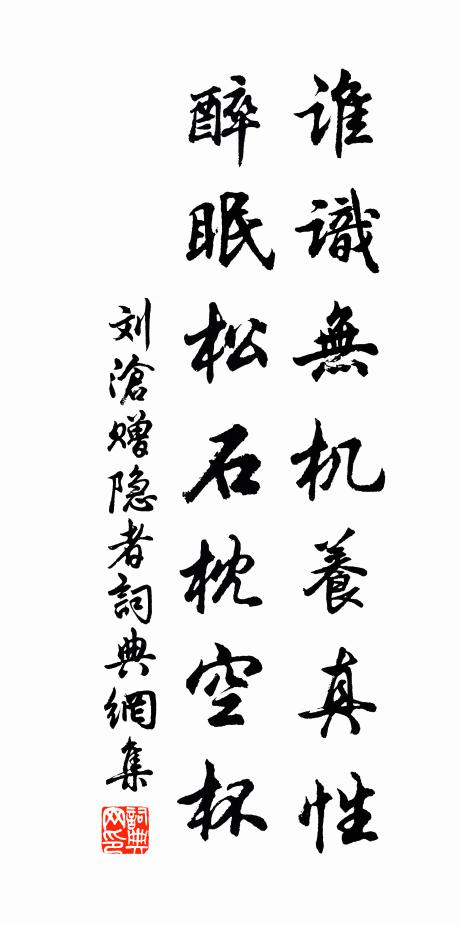 谁識無机養真性
醉眠松石枕空杯
刘滄赠隐者詞典網集
詞典网印